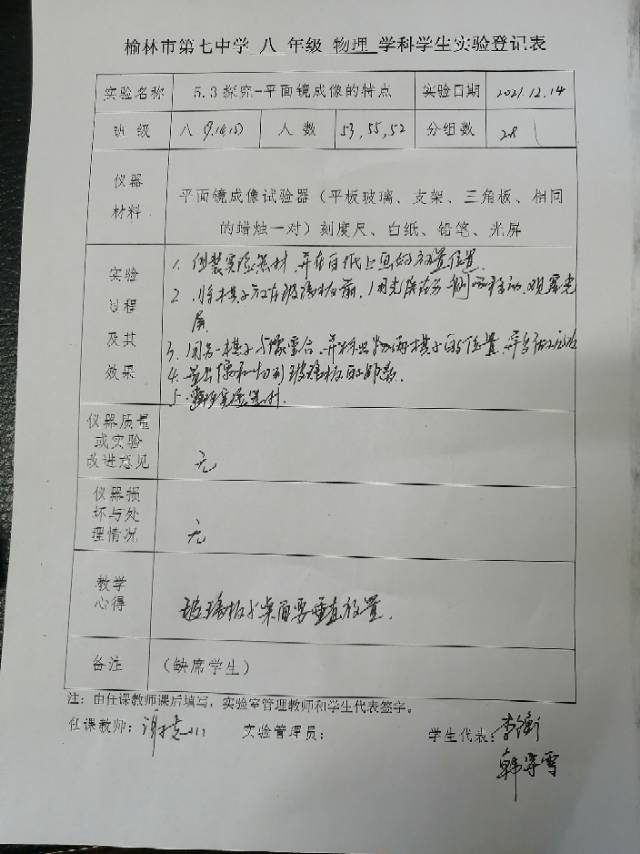 榆林市第七中学 八 年级 物理 学科学生实验登记表
实验名称 5.3探究-平面镜成像的特点 实验日期 2021.12.14
班级 八 人数 53,55,52 分组数 28
仪器材料 平面镜成像试验器（平板玻璃、支架、三角板、相同
的蜡烛一对）刻度尺、白纸、铅笔、光屏
实验过程及其效果
1. 组装实验器材，并在白纸上画的放置位置.
2. 将棋子放在玻璃板前，用光屏在另一侧移动，观察光
屏
3. 用另一棋子与像重合，并标出物两棋子的位置，
4. 量出像和物到玻璃板的距离.
5. 实验器材.
仪器质量或实验改进意见 无
仪器损坏与处理情况 无
教学心得 玻璃板与桌面要垂直放置.
备注 （缺席学生）
注：由任课教师课后填写，实验室管理教师和学生代表签字。
任课教师： 实验管理员： 学生代表：李衡
韩雪